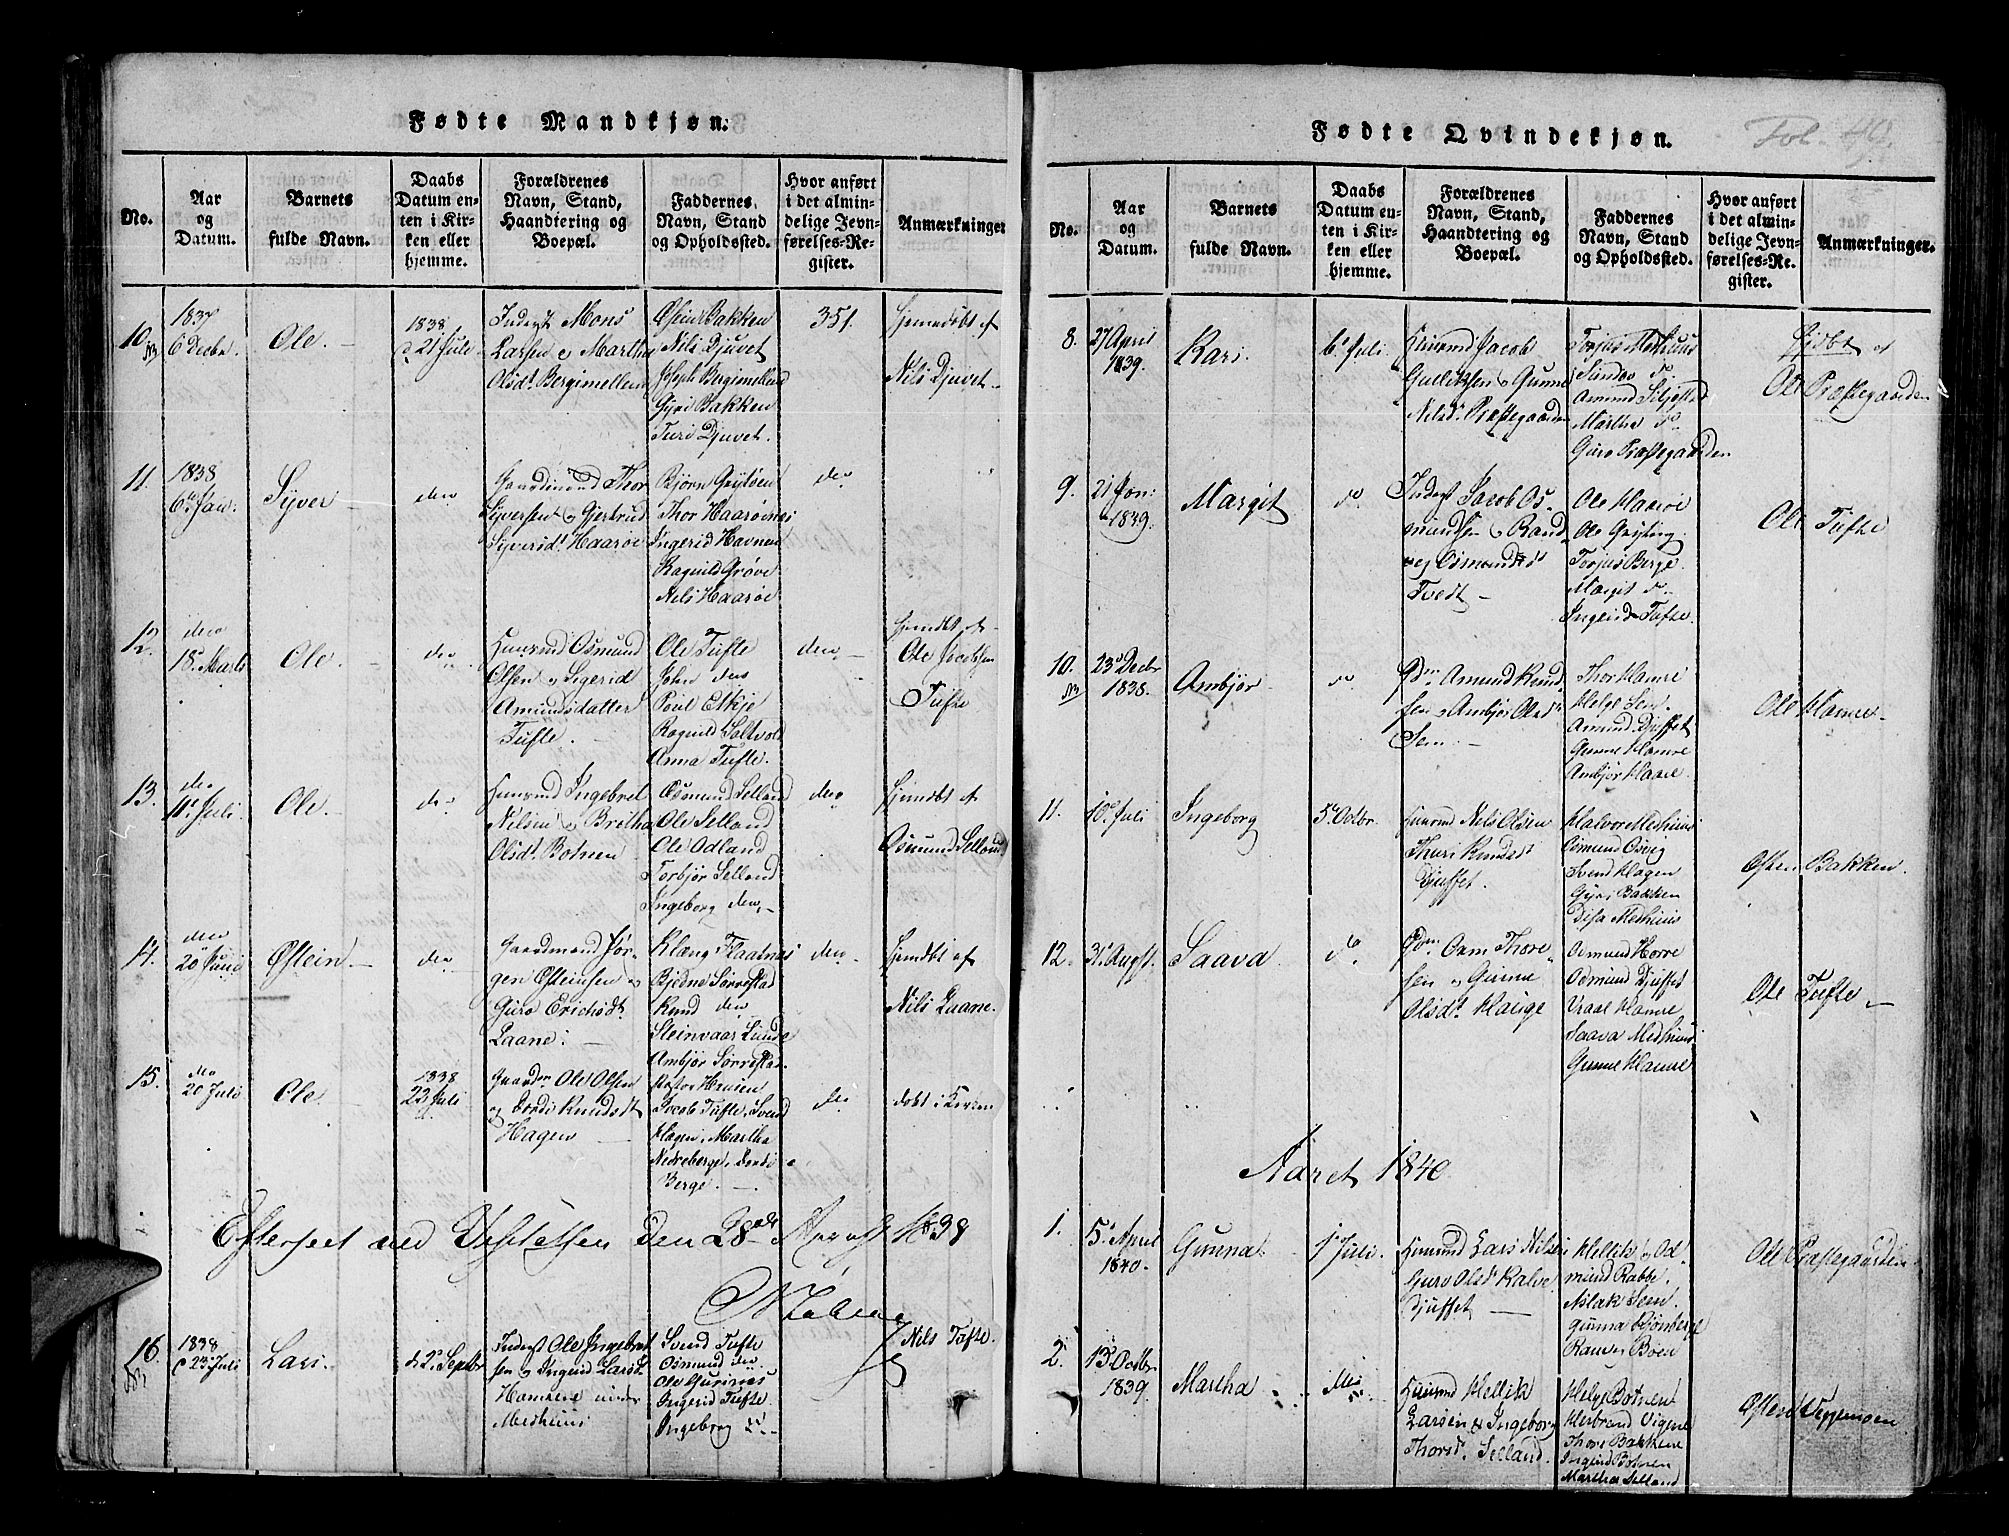 Fødte Mandkjøn.
No.
Aar
og
Datum.
Barnets
fulde Navn.
Daabs
Datum en-
ten i Kir-
ken eller
hjemme.
Forældrenes
Navn, Stand,
Haandtering og
Boepæl.
Faddernes
Navn, Stand
og Opholdssted.
Hvor anført
i det almin-
delige Jevn-
førelses-Re-
gister.
Anmærkninger
10.
1837
6 Decbr.
Ole.
1838
21 Juli
Inderst Mons
Larsen & Martha
Olsdt. Bergimellem
Østein Bakken
Nils Djuvet
Joseph Bergimellem
Gyri Bakken
Turi Djuvet.
351.
hjemdøbt af
Nils Djuvet
11.
1838
6te Jan.
Syver
do
Gaardmand Thor
Syversen & Gjertrud
Syversdt. Haarøe
Bjørn Gryteen
Thor Haarøines
Ingerid Havnen
Ragnild Grøve
Nils Haarøe
do
12.
do
18 Marts
Ole.
do
Huusmd Osmund
Olsen & Sigerid
Amundsdatter
Tufte.
Ole Tufte
John do
Poul Eikje
Ragnild Saltvold
Anna Tufte.
do
hjemdøbt af
Ole Jacobsen
Tufte
13.
do
11 Juli
Ole.
do
Huusmd Ingebret
Nilsen & Britha
Olsdt. Botnen
Osmund Selland
Ole Selland
Ole Odland
Torbjør Selland
Ingeborg do
do
hjemdøbt af
Osmund Selland
14.
do
20 Juni
Østein.
do
Gaardmand Jør-
gen Østeinsen &
Guro Erichsdt.
Laane.
Klang Flaatnes
Bjedne Sørrestad
Knud do
Steinvaar Lunde
Ambjør Sørrestad
do
hjemdøbt af
Nils Laane.
15.
do
20 Juli
Ole.
1838
23 Juli
Gaardm Ole Olsen
& Dordi Knudsdt
Hagen
Hansen
Jacob Tufte, Svend
Hagen, Martha
Nedreberge, Dordi
Berge.
do
døbt i Kirken
Efterseet ved Visitatsen den 28de August 1838
16.
1838
d 23 Juli
Lars.
d 2 Septbr
Inderst Ole Ingebret
sen & Ingerid Larsdt
Hamrene under
Medhuus
Svend Tufte
Osmund do
Ole Gurines
Ingerid Tufte
Ingeborg do
Nils Tufte.
Fødte Qvindekjøn.
Fol. 49.
No.
Aar
og
Datum.
Barnets
fulde Navn.
Daabs
Datum en-
ten i Kir-
ken eller
hjemme.
Forældrenes
Navn, Stand,
Haandtering og
Boepæl.
Faddernes
Navn, Stand
og Opholdssted.
Hvor anført
i det almin-
delige Jevn-
førelses-Re-
gister.
Anmærkninger.
8.
27 April
1839.
Kari.
6 Juli
Huusmd Jacob
Gulliksen & Gunne
Nilsd. Præstegaarden
Torjus Methuus
Sundøe do
Amund Siljestad
Martha do
Guro Præstegaarden
hjdbt af
Ole Præstegaarden
9.
21 Jan:
1839.
Margit
do
Inderst Jacob Os-
mundsen & Rand
vei Osmundsd
Tvedt
Ole Haaroe
Ole Grisberg
Torjus Berge
Margit do
Ingerid Tufte.
Ole Tufte
10.
23 Decbr
1838.
Ambjør
do
Amund Knud
sen & Ambjør Olsdt
Sem.
Thor Hamre
Helge Sem
Amund Djuffet
Gunne Hamre
Ambjør Haaroe
Ole Hamre.
11.
10 Juli
Ingeborg
5 Octbr.
Huusmd Nils Olsen
Thuri Knudsd
Djuffet.
Halvor Medhuus
Osmund Osvey
Svend Hagen
Gyri Bakken
Disa Medhuus
Østen Bakken.
12.
31 Augst.
Saava
do
Thore-
sen & Gunne
Olsdt. Hauge
Osmund Horre
Osmund Djuffet
Vraal Hamre
Saava Medhuus
Gunne Hamre
Ole Tufte
Aaret 1840
1.
5 April
1840.
Gunna
1 Juli.
Huusmd Lars Nilsen
Guro Olsd Kalve
Djuffet
Hellik & Od
mund Rabbe.
Aslak Sem.
Gunna Bjønberge
Ranvei Boen
Ole Præstegaarden
2.
13 Octbr
1839
Martha
Huusmd Hellik
Larsen & Ingeborg
Thorsd. Selland.
Helge Botnen
Herbrand Vigene
Thore Bakkene
Ingerid Botnen
Martha Selland
Østen Veggemoen